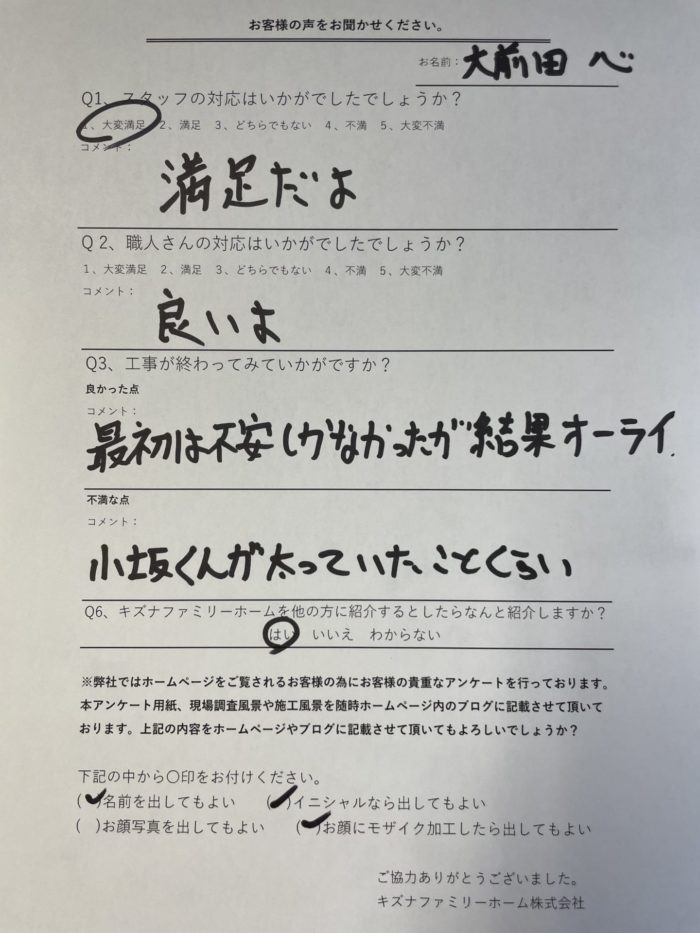 お客様の声をお聞かせください。
お名前： 大前田 心
Q1、スタッフの対応はいかがでしたでしょうか？
1、大変満足 2、満足 3、どちらでもない 4、不満 5、大変不満
コメント：
満足だよ
Q2、職人さんの対応はいかがでしたでしょうか？
1、大変満足 2、満足 3、どちらでもない 4、不満 5、大変不満
コメント：
良いよ
Q3、工事が終わってみていかがですか？
良かった点
コメント：
最初は不安しかなかったが結果オーライ.
不満な点
コメント：
小坂くんが太っていたことくらい
Q6、キズナファミリーホームを他の方に紹介するとしたらなんと紹介しますか？
はい いいえ わからない
※弊社ではホームページをご覧されるお客様の為にお客様の貴重なアンケートを行っております。
本アンケート用紙、現場調査風景や施工風景を随時ホームページ内のブログに記載させて頂いて
おります。上記の内容をホームページやブログに記載させて頂いてもよろしいでしょうか？
下記の中から〇印をお付けください。
(✓)名前を出してもよい (✓)イニシャルなら出してもよい
( )お顔写真を出してもよい (✓)お顔にモザイク加工したら出してもよい
ご協力ありがとうございました。
キズナファミリーホーム株式会社